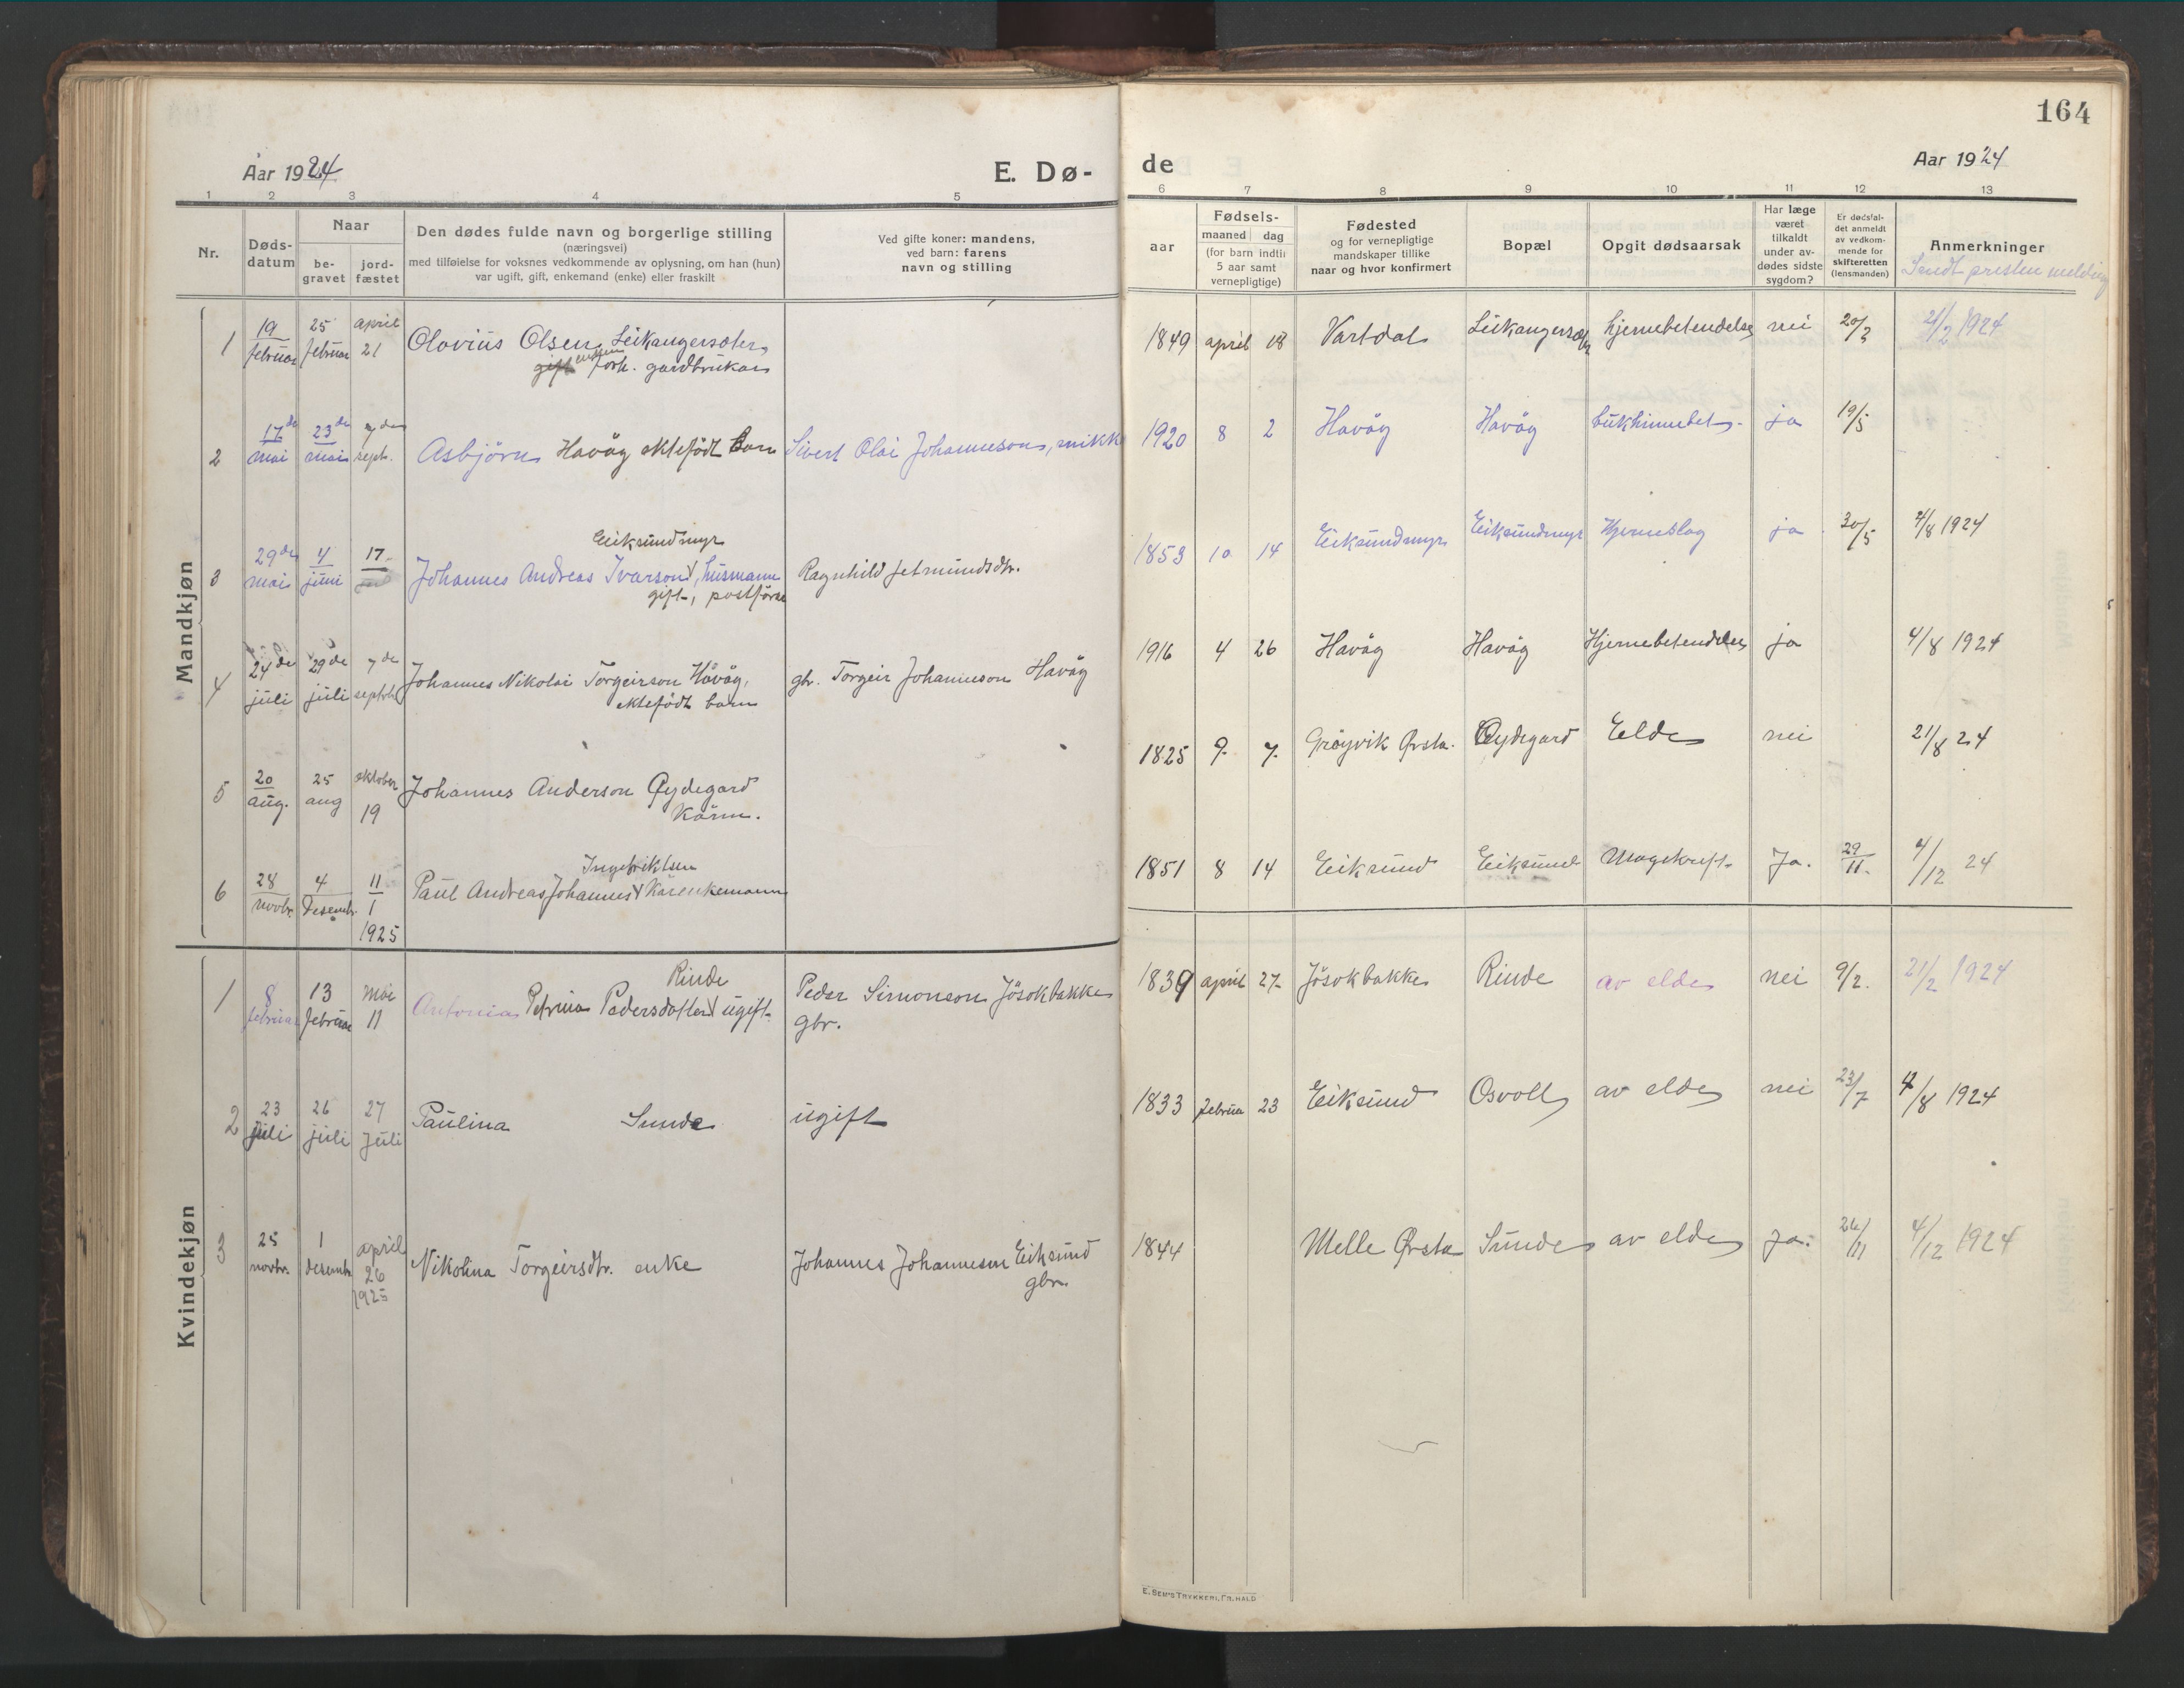 164
Aar 1924
E. Dø-
de
Aar 1924
1 2 3 4 5 6 7 8 9 10 11 12 13
Nr.
Døds-
datum
Naar
be-
gravet
jord-
fæstet
Den dødes fulde navn og borgerlige stilling
(næringsvei)
med tilføielse for voksnes vedkommende av oplysning, om han (hun)
var ugift, gift, enkemand (enke) eller fraskilt
Ved gifte koner: mandens,
ved barn: farens
navn og stilling
aar
Fødsels-
maaned dag
(for barn indtil
5 aar samt
vernepligtige)
Fødested
og for vernepligtige
mandskaper tillike
naar og hvor konfirmert
Bopæl
Opgit dødsaarsak
Har læge
været
tilkaldt
under av-
dødes sidste
sygdom?
Er dødsfal-
det anmeldt
av vedkom-
mende for
skifteretten
(lensmanden)
Anmerkninger
Sendt presten melding
Mandkjøn
1 19 februar 25 februar april 21 Olavius Olsen Leikangersæter
gift forh. gardbrukar
1849 april 18 Vartdal Leikangersæter hjernebetendelse nei 20/2 21/2 1924
2 17de mai 23de mai 7de sept. Asbjörn Havåg ektefödt barn Sivert Olai Johanneson,
1920 8 2 Havåg Havåg bukhinnebet. ja 19/5
Eiksundmyr
3 29de mai 4 juni 17 Johannes Andreas Ivarson, husmann Ragnhild Jetmundsdtr.
gift, postförar
1853 10 14 Eiksundmyr Eiksundmyr Hjerneslag ja 30/5 4/8 1924
4 24de juli 29de juli 7de septbr Johannes Nikolai Torgeirson Håvåg, gbr. Torgeir Johanneson Havåg
ektefödt barn
1916 4 26 Havåg Havåg Hjernebetendelse ja 4/8 1924
5 20 aug. 25 aug oktober 19 Johannes Anderson Øydegard
Kårm.
1825 9. 7. Gröyvik Ørsta. Øydegard Elde nei 21/8 24
Ingebriktsen
6 28 novbr. 4 Desembr. 11/1 1925 Paul Andreas Johannes Kårenkemann
1851 8 14 Eiksund Eiksund Magekreft. Ja. 29/11. 4/12 24
Kvindekjøn
Rinde
1 8 februar 13 februar Mai 11 Antonia Petrina Pedersdatter ugift. Peder Simonson Jösokbakke
gbr.
1839 april 27 Jösokbakke Rinde av elde nei 9/2. 21/2 1924
2 23 juli 26 juli 27 Juli Paulina Sunde ugift
1833 februa 23 Eiksund Osvoll av elde nei 23/7 4/8 1924
3 25 novbr. 1 desembr april 26 1925 Nikolina Torgeirsdtr. enke Johannes Johanneson Eiksund
gbr.
1844 Melle Ørsta Sunde av elde Ja. 26/11 4/12 1924